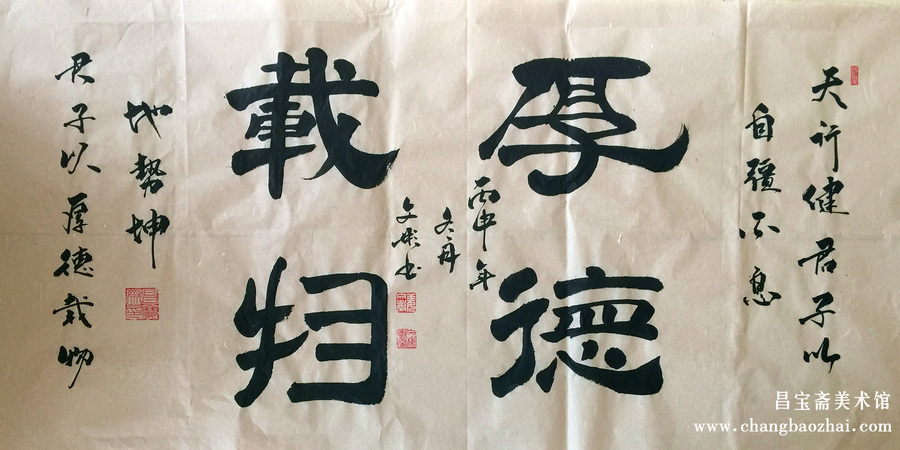 天行健君子以
自疆不息
厚德
載物
丙申年
冬月
文彬书
地势坤
君子以厚德载物
昌宝斋美术馆
www.changbaozhai.com